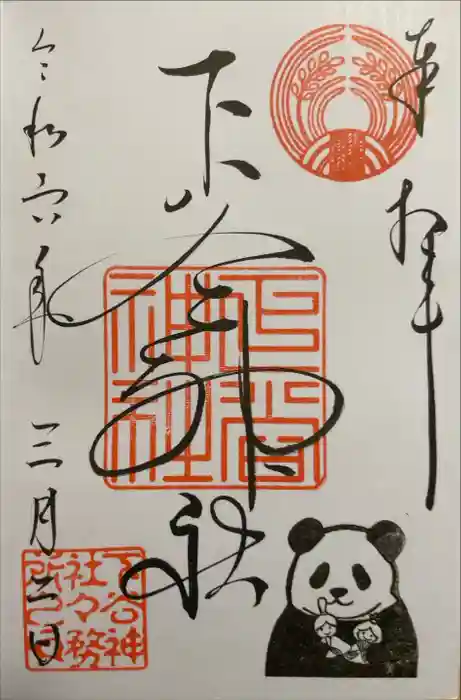 奉拝
下谷神社
下谷神社
令和六年 三月三日
下谷神
社々務
所之印